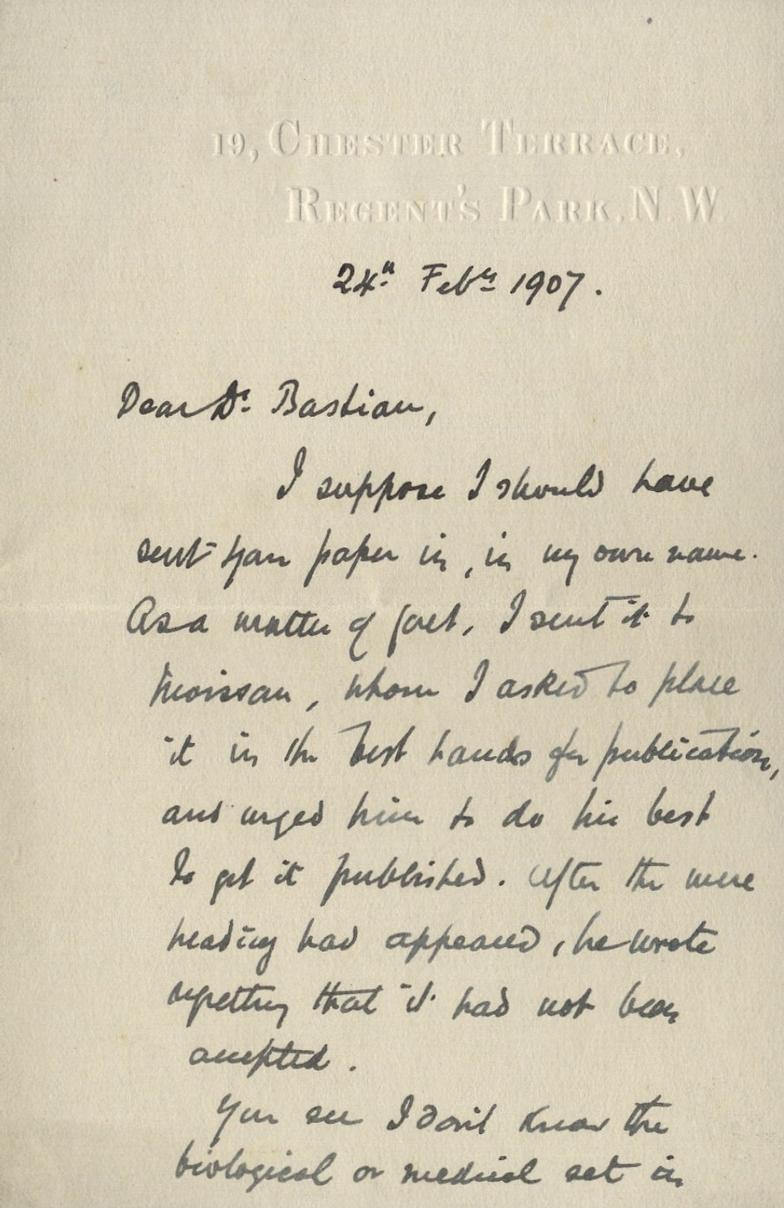 19, CHESTER TERRACE,
REGENT'S PARK. N.W.
24th Feby 1907.
Dear Dr. Bastian,
I suppose I should have
sent your paper in, in my own name.
As a matter of fact, I sent it to
Moissan, whom I asked to place
it in the best hands for publication,
and urged him to do his best
to get it published. After the mere
heading had appeared, he wrote
regretting that it had not been
accepted.
You see I don't know the
biological or medical set in